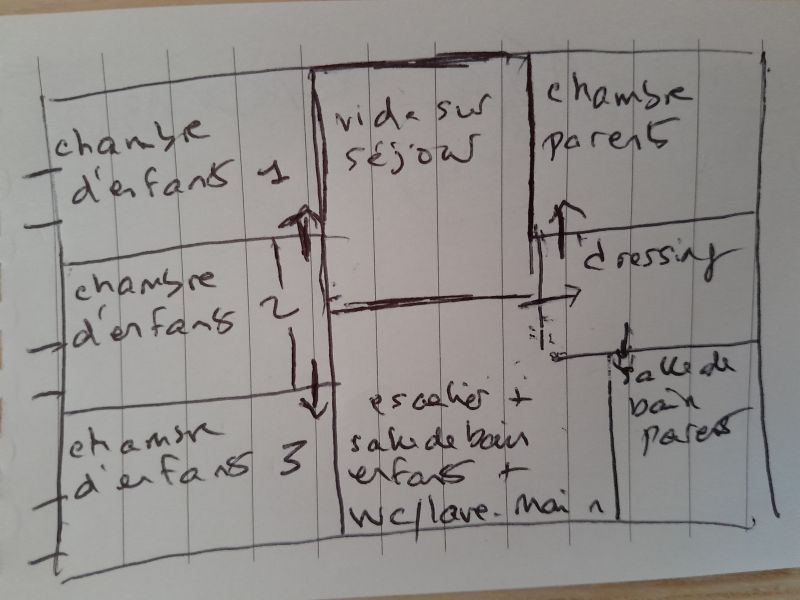 chambre
d'enfants 1
vide sur
séjour
chambre
parents
chambre
d'enfants 2
dressing
chambre
d'enfants 3
escalier +
salle de bain
enfants +
WC/lave-main
salle de
bain
parents